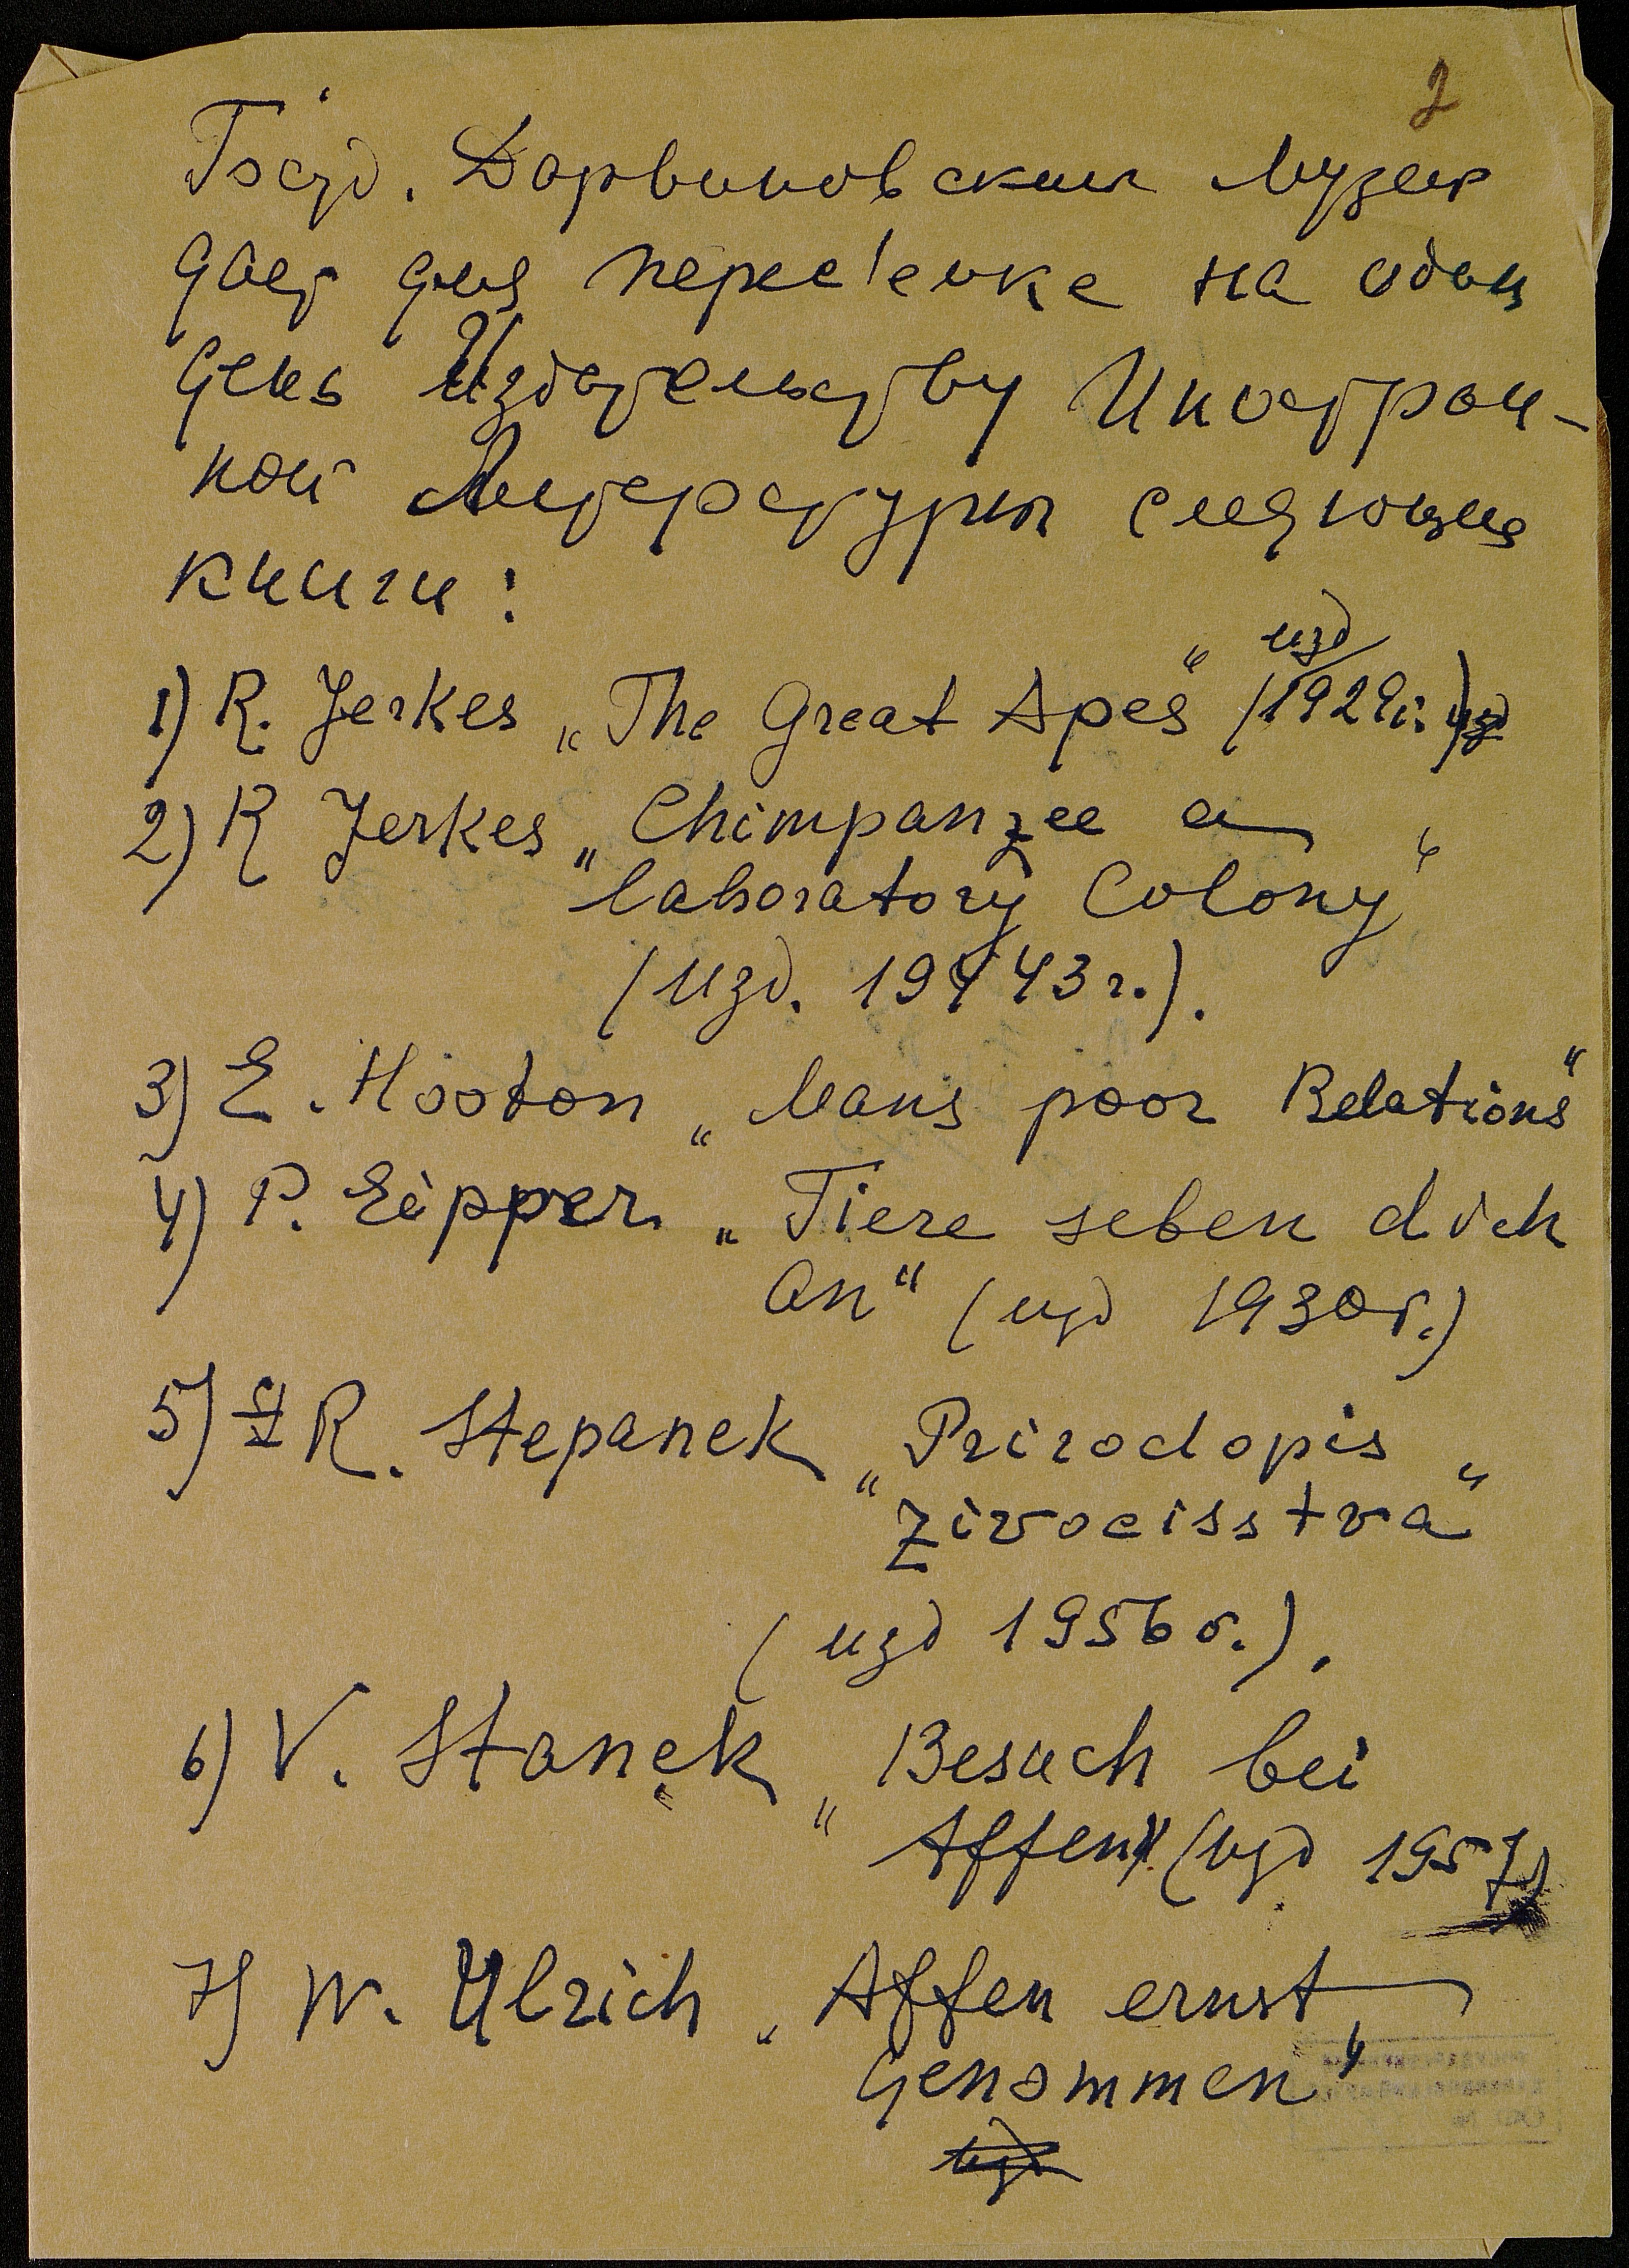 2
Госуд. Дарвиновский Музей
дает для пересъемке на один
день Издательству Иностран-
ной Литературы следующия
книги:
изд
1) R. Jerkes „The Great Apes“ (1929 г.)
2) R Jerkes „Chimpanzee a
laboratory Colony“
(изд. 1943 г.).
3) E. Hooton „Mans poor Relations“
4) P. Eipper „Tiere sehen dich
an“ (изд 1930 г.)
5) R. Stepanek „Prirodopis
zivocisstva“
(изд 1956 г.).
6) V. Stanek „Besuch bei
Affen“ (изд 1957)
7) W. Ulrich „Affen ernst
genommen“